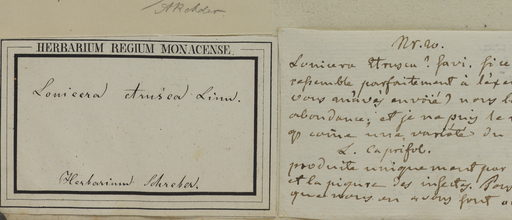 ARehder
HERBARIUM REGIUM MONACENSE.
Lonicera etrusca Linn.
Herbarium Schreber.
Nr. 20.
Lonicera Etrusca? Savi.
ressemble parfaitement à l'exem
vous m'avés envoié
abondance; et je ne puis le
que come une varieté du
L. Caprifol.
produite uniquement par
et la piqure des insectes. Pour
que nous en